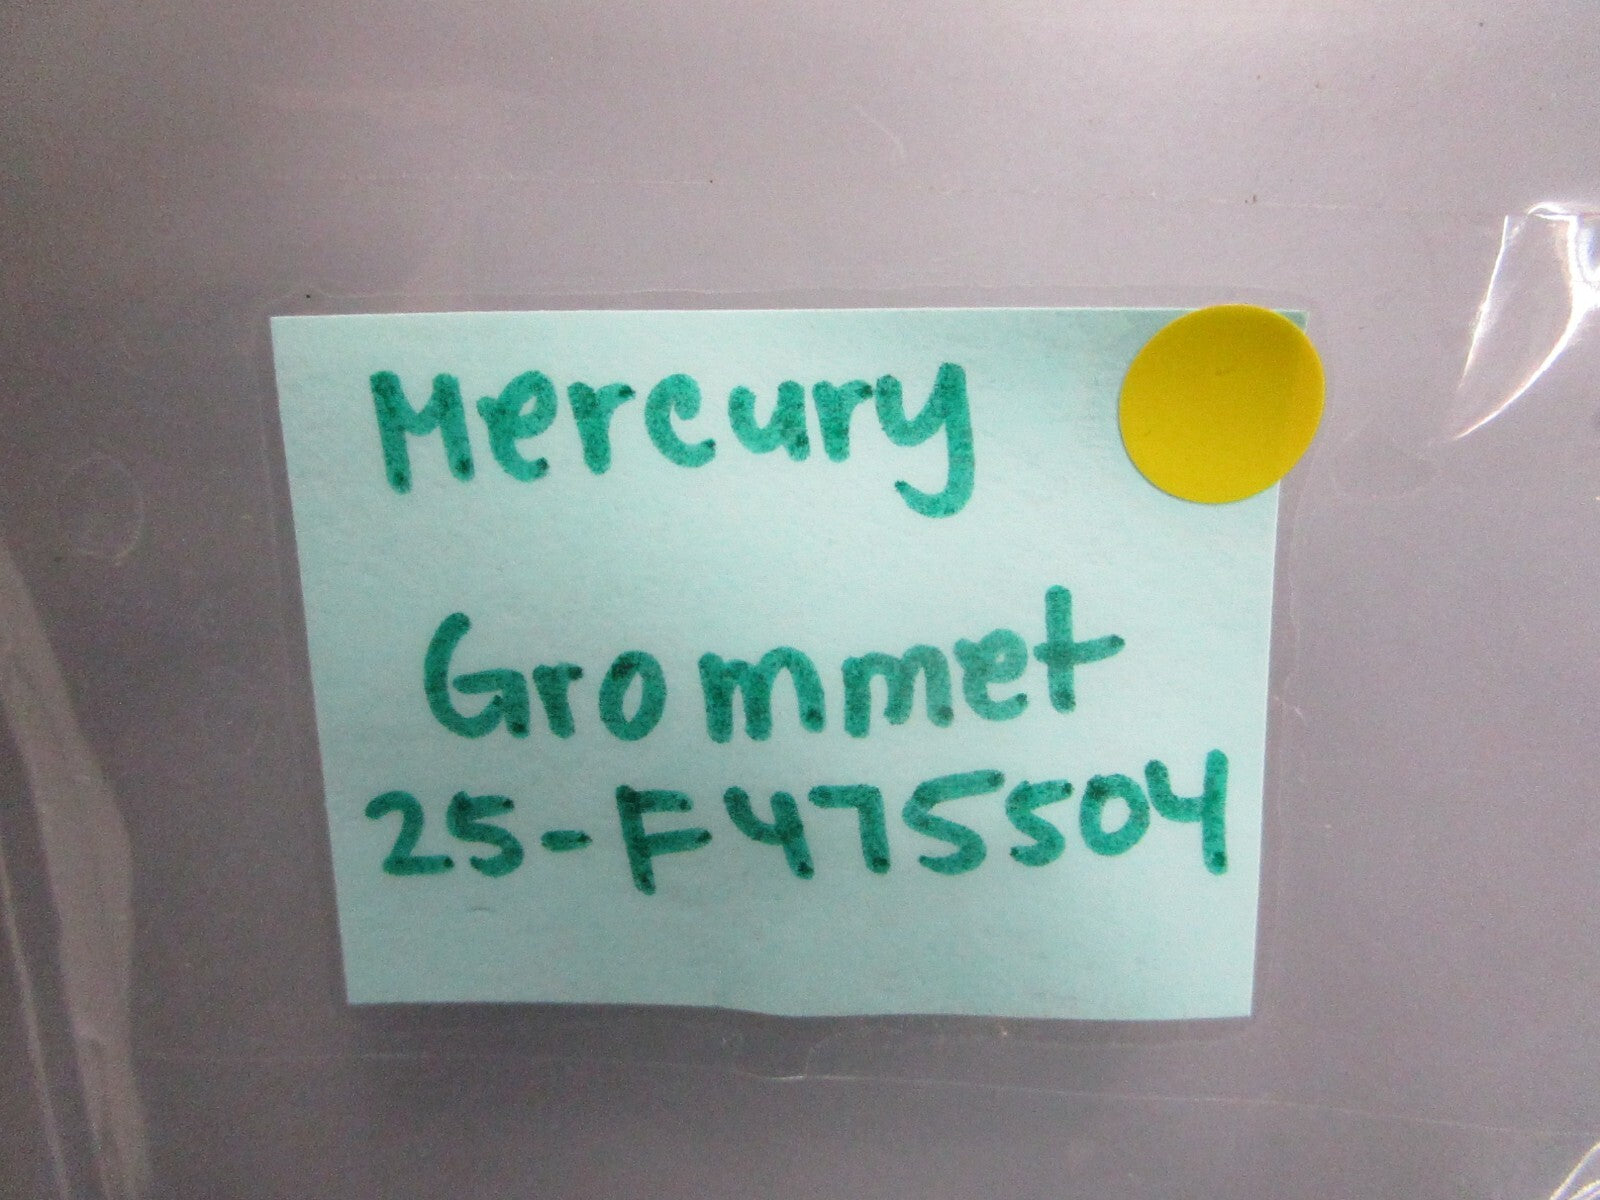 Mercury
Grommet
25-F475504